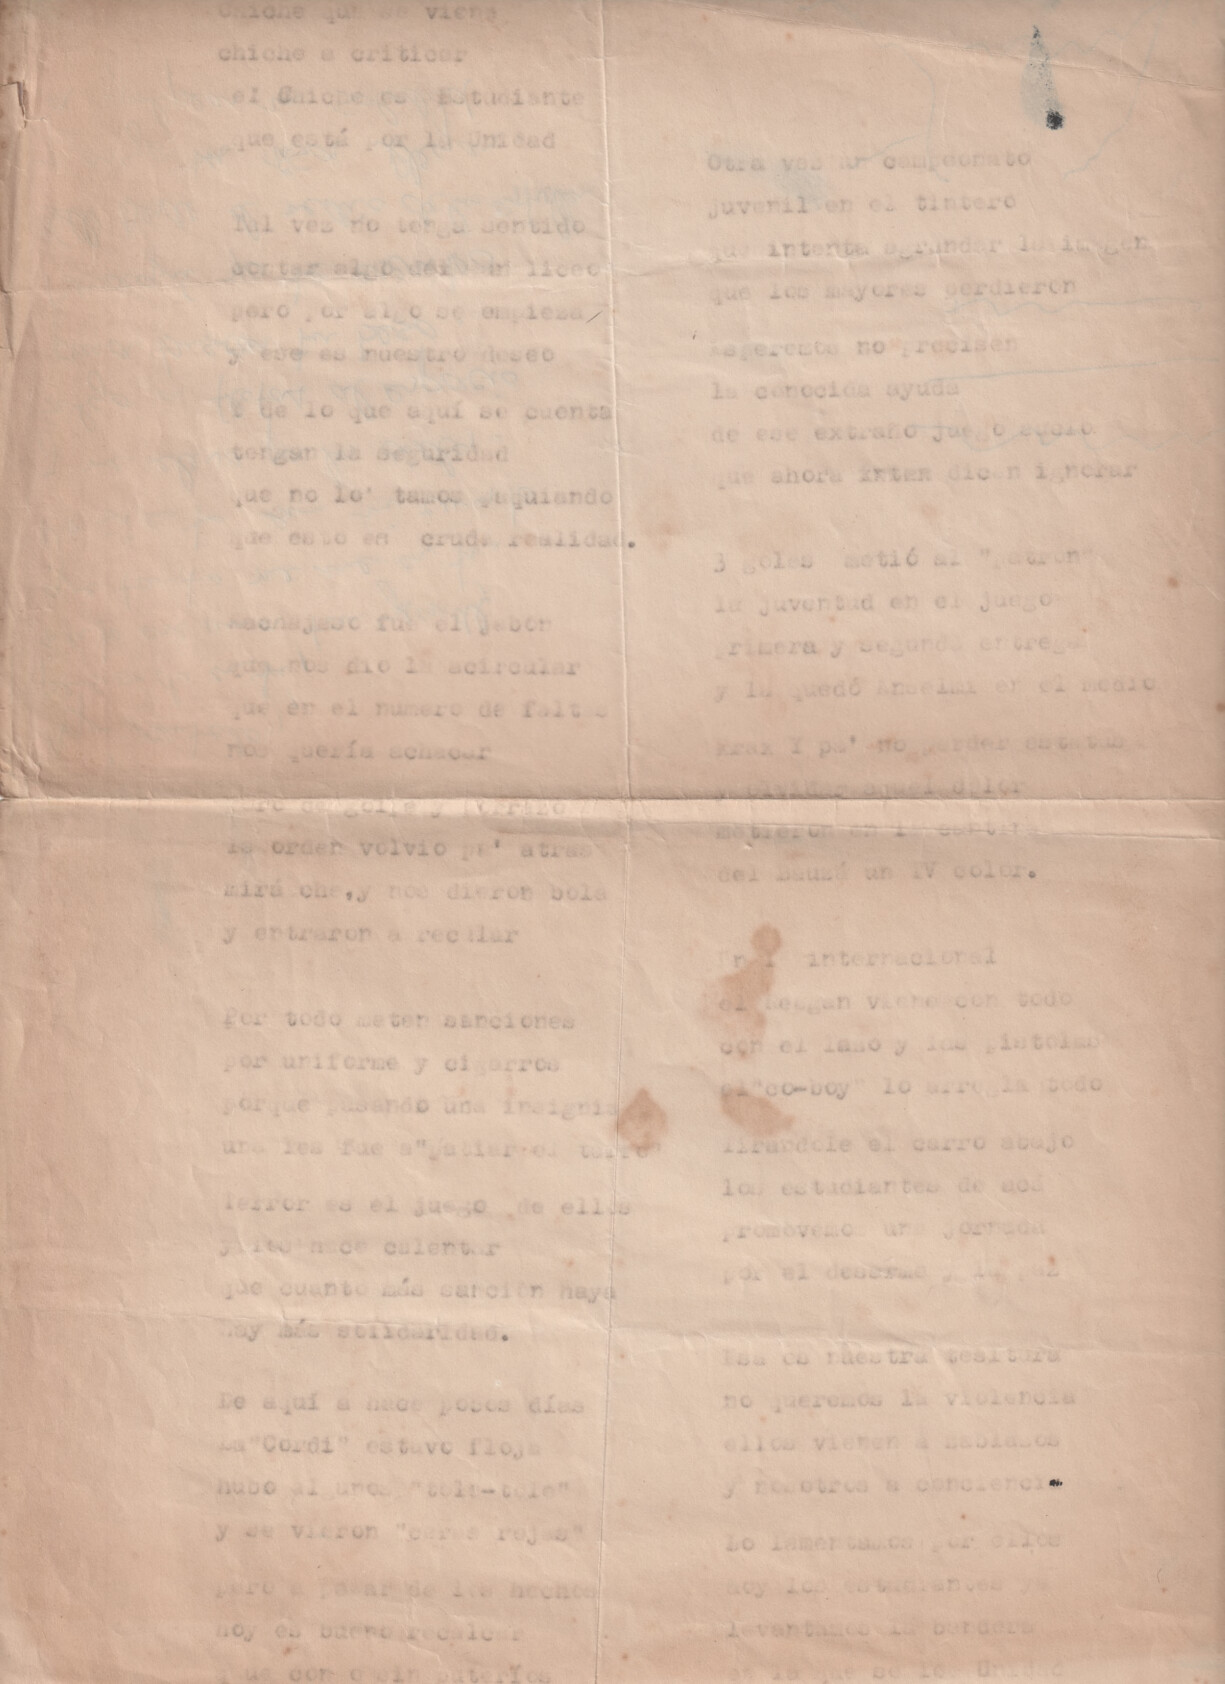 Chiche que se viene
chiche a criticar
el Chiche es Estudiante
que está por la Unidad
Tal vez no tenga sentido
contar algo del liceo
pero por algo se empieza
y ese es nuestro deseo
Y de lo que aquí se cuenta
tengan la seguridad
que no lo' tamos paquiando
que esto es cruda realidad.
Machajaso fue el jabón
que nos dio la acircular
que en el numero de faltas
nos quería achacar
Pure de golpe y
la orden volvio pa' atras
mirá che,y nos dieron bola
y entraron a recular
Por todo meten sanciones
por uniforme y cigarros
porque pasando una insignia
una fue a"patiar el tarro"
Terror es el juego de ellos
y los hace calentar
que cuanto más sanción haya
hay más solidaridad.
De aquí a hace pocos días
La"Cordi" estuvo floja
hubo al unos "tole-tole"
y se vieron "caras rojas"
pero a pesar de los hechos
hoy es bueno recalcar
que con o sin puteríos
Otra vez un campeonato
juvenil en el tintero
que intenta agrandar la imagen
que los mayores perdieron
Esperemos no precisen
la conocida ayuda
de ese extraño juego sucio
que ahora dicen ignorar
3 goles metió al "patron"
la juventud en el juego
primera y segunda entrega
y la quedó Anselmi en el medio
Y pa' no perder
y olvidar aquel dolor
metieron en la cantina
del Bauzá un TV color.
En lo internacional
el Reegan viene con todo
con el lazo y las pistolas
el"co-boy" lo arregla todo
Tirandole el carro abajo
los estudiantes de acá
promovemos una jornada
por el desarme y la paz
Esa es nuestra tesitura
no queremos la violencia
ellos vienen a
y nosotros a conciencia
Lo lamentamos por ellos
hoy los estudiantes ya
levantamos la bandera
en la que se lee Unidad